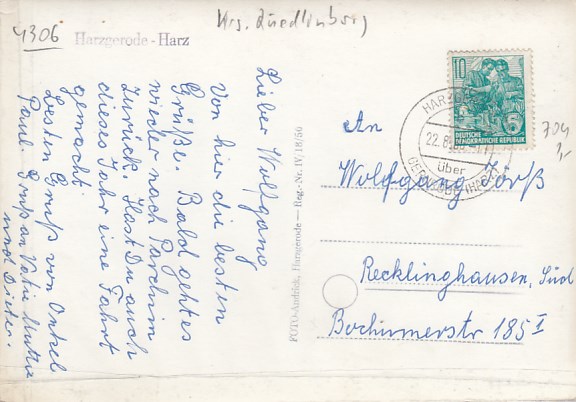 4306
Krs. Quedlinburg
Harzgerode - Harz
Lieber Wolfgang
Von hier die besten
Grüße. Bald gehtes
wieder nach Parchim
zurück. Hast Du auch
dieses Jahr eine Fahrt
gemacht
Besten Gruß von Onkel
Paul. Gruß an Vatie Mutti
und Dieter.
FOTO-Andrick, Harzgerode — Reg.-Nr. IV/18/50
10
DEUTSCHE
DEMOKRATISCHE REPUBLIK
5
HARZ
22.8.
über
(HARZ)
704
An
Wolfgang Jörß
Recklinghausen, Süd
Bochumerstr 185 I